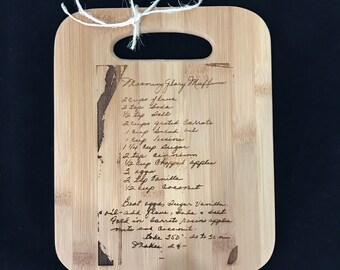 Morning Glory Muffins
2 cups flour
2 tsp Soda
1/2 tsp Salt
2 cups grated Carrots
1 cup Salad oil
1 cup raisins
1 1/4 cup Sugar
2 tsp cinnamon
1/2 cup Chopped apples
3 eggs
2 tsp Vanilla
1/2 cup Coconut
Beat eggs, Sugar Vanilla
oil - add flour, Soda & salt
carrots raisins apples
nuts and coconut
Bake 350° 20 to 30 min
Makes 24